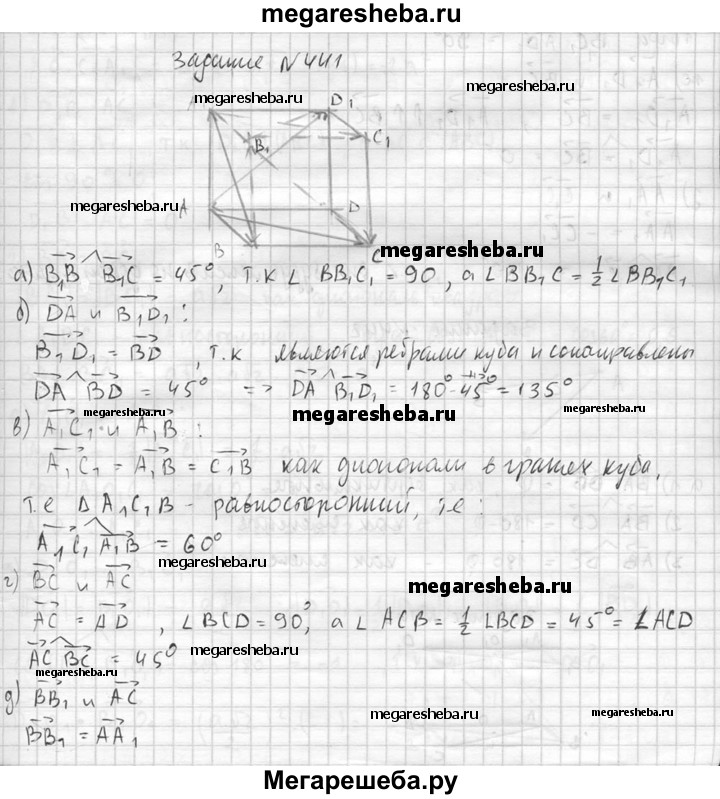 megaresheba.ru
Задание №441
megaresheba.ru
megaresheba.ru
D1
B1
C1
megaresheba.ru
A
D
B
C
megaresheba.ru
а) B1B B1C = 45°, т.к ∠ BB1C1 = 90, а ∠ BB1C = 1/2 ∠ BB1C1
б) DA и B1D1 :
megaresheba.ru
B1D1 = BD, т.к являются ребрами куба и сонаправлены
DA BD = 45° => DA B1D1 = 180° - 45° = 135°
megaresheba.ru
megaresheba.ru
в) A1C1 и A1B :
A1C1 = A1B = C1B как диогонали в гранях куба,
т.е Δ A1C1B - равносторонний, т.е :
A1C1 A1B = 60°
megaresheba.ru
г) BC и AC
megaresheba.ru
AC = AD, ∠ BCD = 90°, а ∠ ACB = 1/2 ∠ BCD = 45° = ∠ ACD
AC BC = 45°
megaresheba.ru
megaresheba.ru
д) BB1 и AC
megaresheba.ru
megaresheba.ru
BB1 = AA1
Мегарешеба.ру